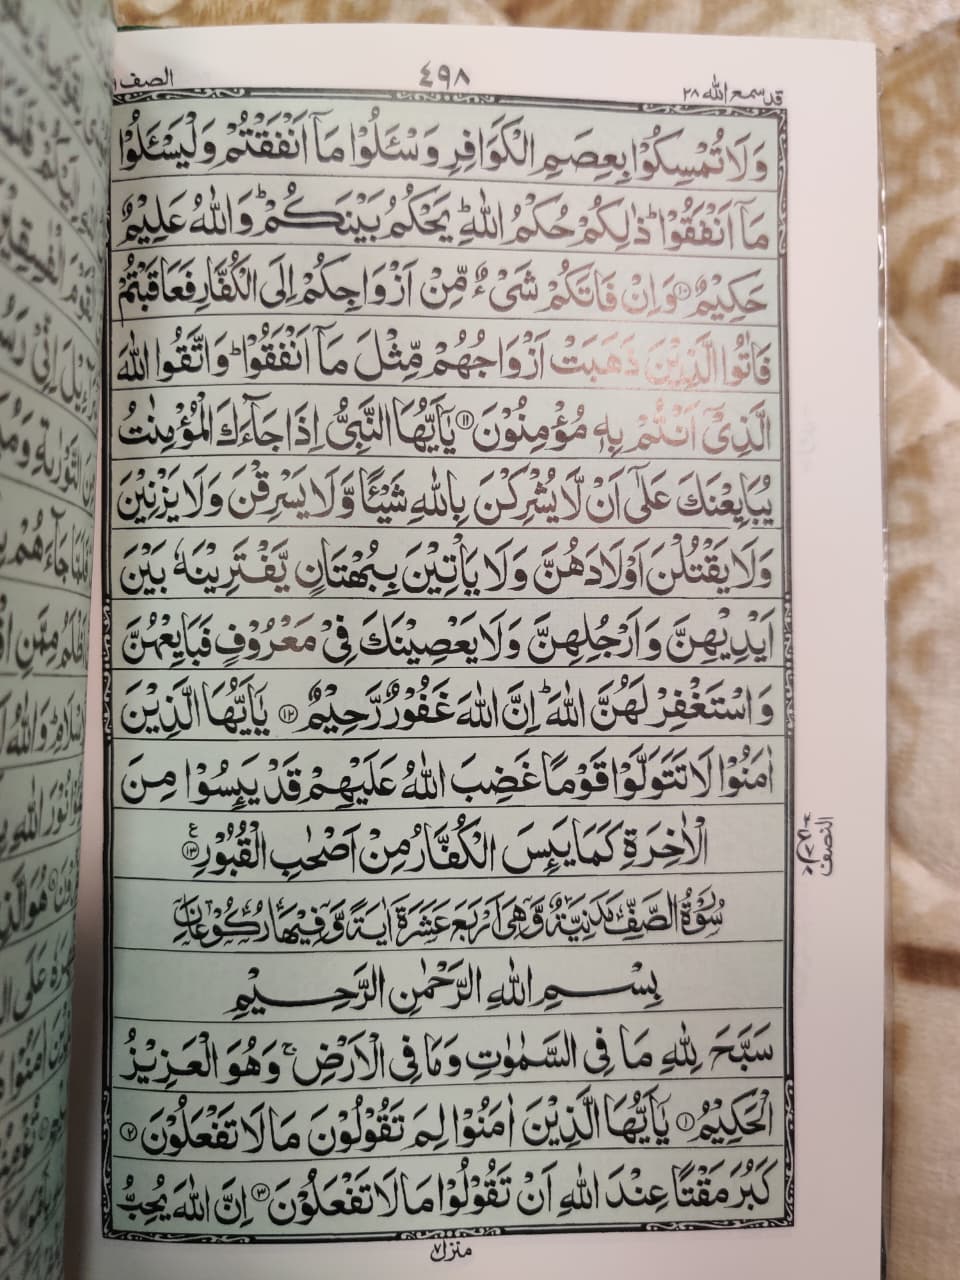 قد سمع الله ٢٨
٤٩٨
الصف
وَلَا تُمْسِكُوْا بِعِصَمِ الْكَوَافِرِ وَسْـَٔلُوْا مَاۤ اَنْفَقْتُمْ وَلْيَسْـَٔلُوْا
مَاۤ اَنْفَقُوْا ؕ ذٰلِكُمْ حُكْمُ اللّٰهِ ؕ يَحْكُمُ بَيْنَكُمْ ؕ وَاللّٰهُ عَلِيْمٌ
حَكِيْمٌ ۝١٠ وَاِنْ فَاتَكُمْ شَىْءٌ مِّنْ اَزْوَاجِكُمْ اِلَى الْكُفَّارِ فَعَاقَبْتُمْ
فَاٰتُوا الَّذِيْنَ ذَهَبَتْ اَزْوَاجُهُمْ مِّثْلَ مَاۤ اَنْفَقُوْا ؕ وَاتَّقُوا اللّٰهَ
الَّذِىْۤ اَنْتُمْ بِهٖ مُؤْمِنُوْنَ ۝١١ يٰۤاَيُّهَا النَّبِىُّ اِذَا جَآءَكَ الْمُؤْمِنٰتُ
يُبَايِعْنَكَ عَلٰۤى اَنْ لَّا يُشْرِكْنَ بِاللّٰهِ شَيْـًٔا وَّلَا يَسْرِقْنَ وَلَا يَزْنِيْنَ
وَلَا يَقْتُلْنَ اَوْلَادَهُنَّ وَلَا يَاْتِيْنَ بِبُهْتَانٍ يَّفْتَرِيْنَهٗ بَيْنَ
اَيْدِيْهِنَّ وَاَرْجُلِهِنَّ وَلَا يَعْصِيْنَكَ فِىْ مَعْرُوْفٍ فَبَايِعْهُنَّ
وَاسْتَغْفِرْ لَهُنَّ اللّٰهَ ؕ اِنَّ اللّٰهَ غَفُوْرٌ رَّحِيْمٌ ۝١٢ يٰۤاَيُّهَا الَّذِيْنَ
اٰمَنُوْا لَا تَتَوَلَّوْا قَوْمًا غَضِبَ اللّٰهُ عَلَيْهِمْ قَدْ يَئِسُوْا مِنَ
الْاٰخِرَةِ كَمَا يَئِسَ الْكُفَّارُ مِنْ اَصْحٰبِ الْقُبُوْرِ ۝١٣ ع
النصف
سُوْرَةُ الصَّفِّ مَدَنِيَّةٌ وَّهِىَ اَرْبَعَ عَشَرَةَ اٰيَةً وَّفِيْهَا رُكُوْعَانِ
بِسْمِ اللّٰهِ الرَّحْمٰنِ الرَّحِيْمِ
سَبَّحَ لِلّٰهِ مَا فِى السَّمٰوٰتِ وَمَا فِى الْاَرْضِ ۚ وَهُوَ الْعَزِيْزُ
الْحَكِيْمُ ۝١ يٰۤاَيُّهَا الَّذِيْنَ اٰمَنُوْا لِمَ تَقُوْلُوْنَ مَا لَا تَفْعَلُوْنَ ۝٢
كَبُرَ مَقْتًا عِنْدَ اللّٰهِ اَنْ تَقُوْلُوْا مَا لَا تَفْعَلُوْنَ ۝٣ اِنَّ اللّٰهَ يُحِبُّ
منزل ٧